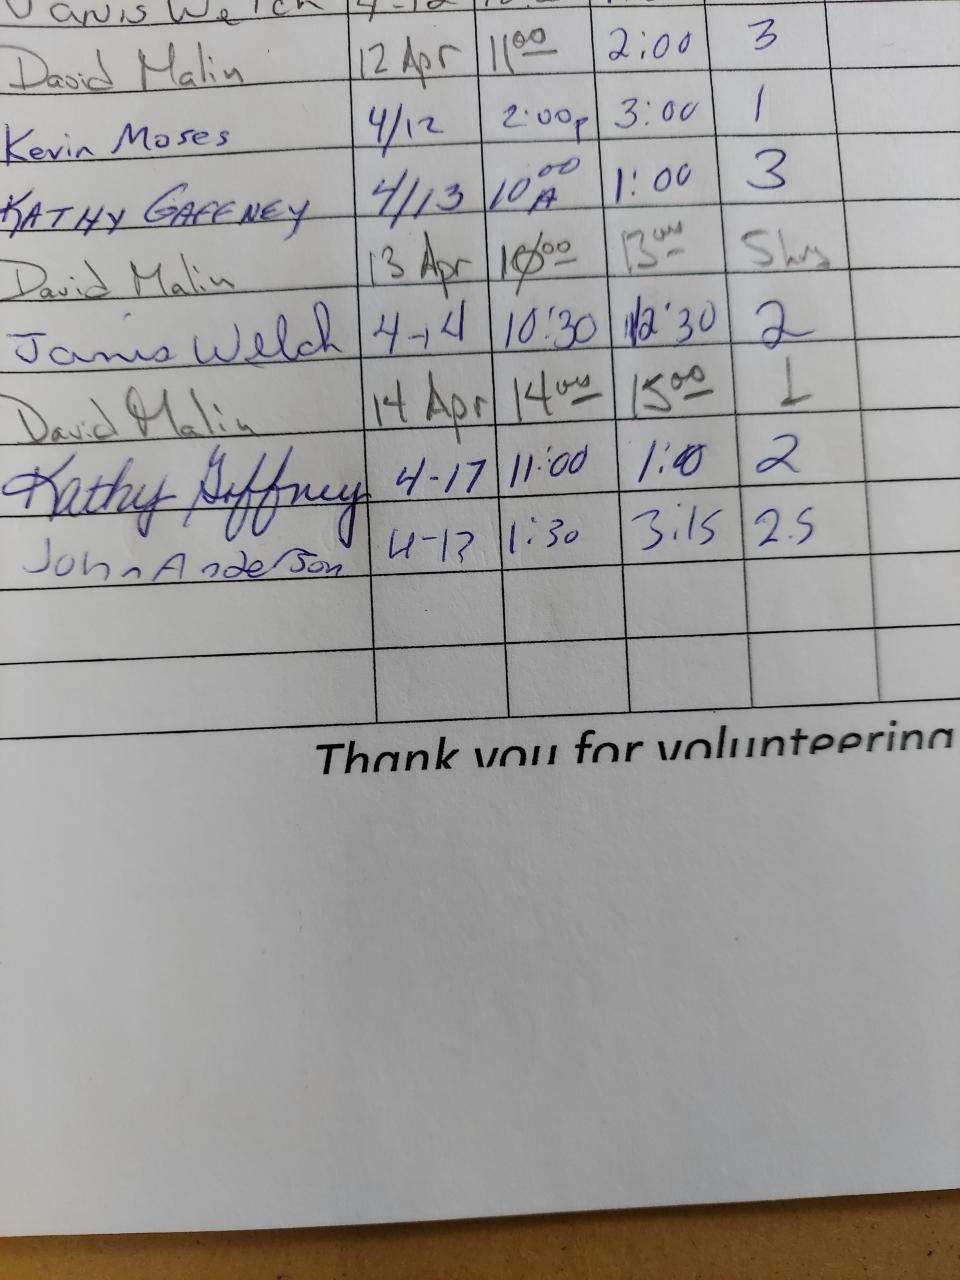 Janis Welch 4-12
David Malin 12 Apr 1100 2:00 3
Kevin Moses 4/12 2:00p 3:00 1
KATHY GAFFNEY 4/13 1000 A 1:00 3
David Malin 13 Apr 1000 1300 5 hrs
Janis Welch 4-14 10:30 12:30 2
David Malin 14 Apr 1400 1500 1
Kathy Gaffney 4-17 11:00 1:0 2
John Anderson 4-17 1:30 3:15 2.5
Thank you for volunteering